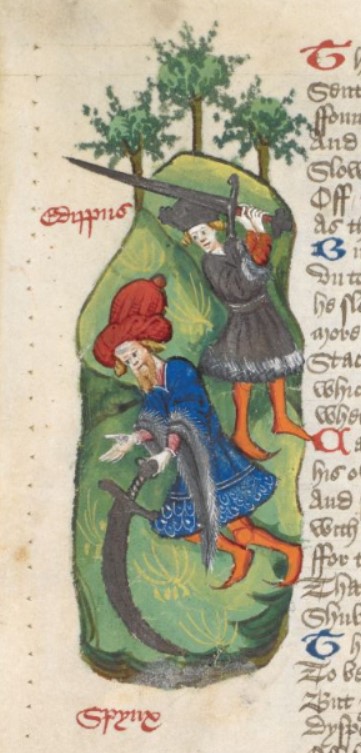 Edippus
Spynx
Th
Sent
ffoun
And
Slow
Off
As t
B
Du to
he slo
more
Stac
Whic
Whe
his o
And
With
ffor t
Tha
Shul
Th
To be
But